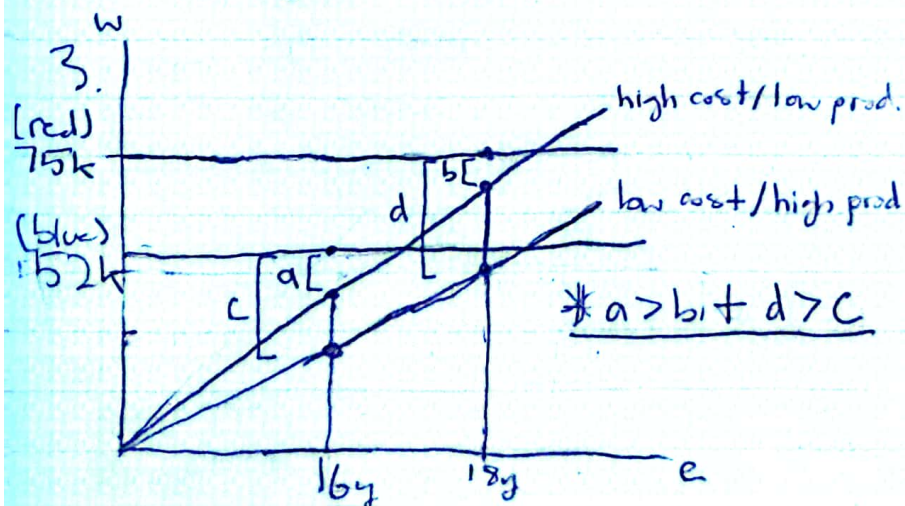 w
3.
(red)
75k
(blue)
52k
high cost/low prod.
low cost/high prod
b
d
a
c
* a>b, + d>c
16y
18y
e